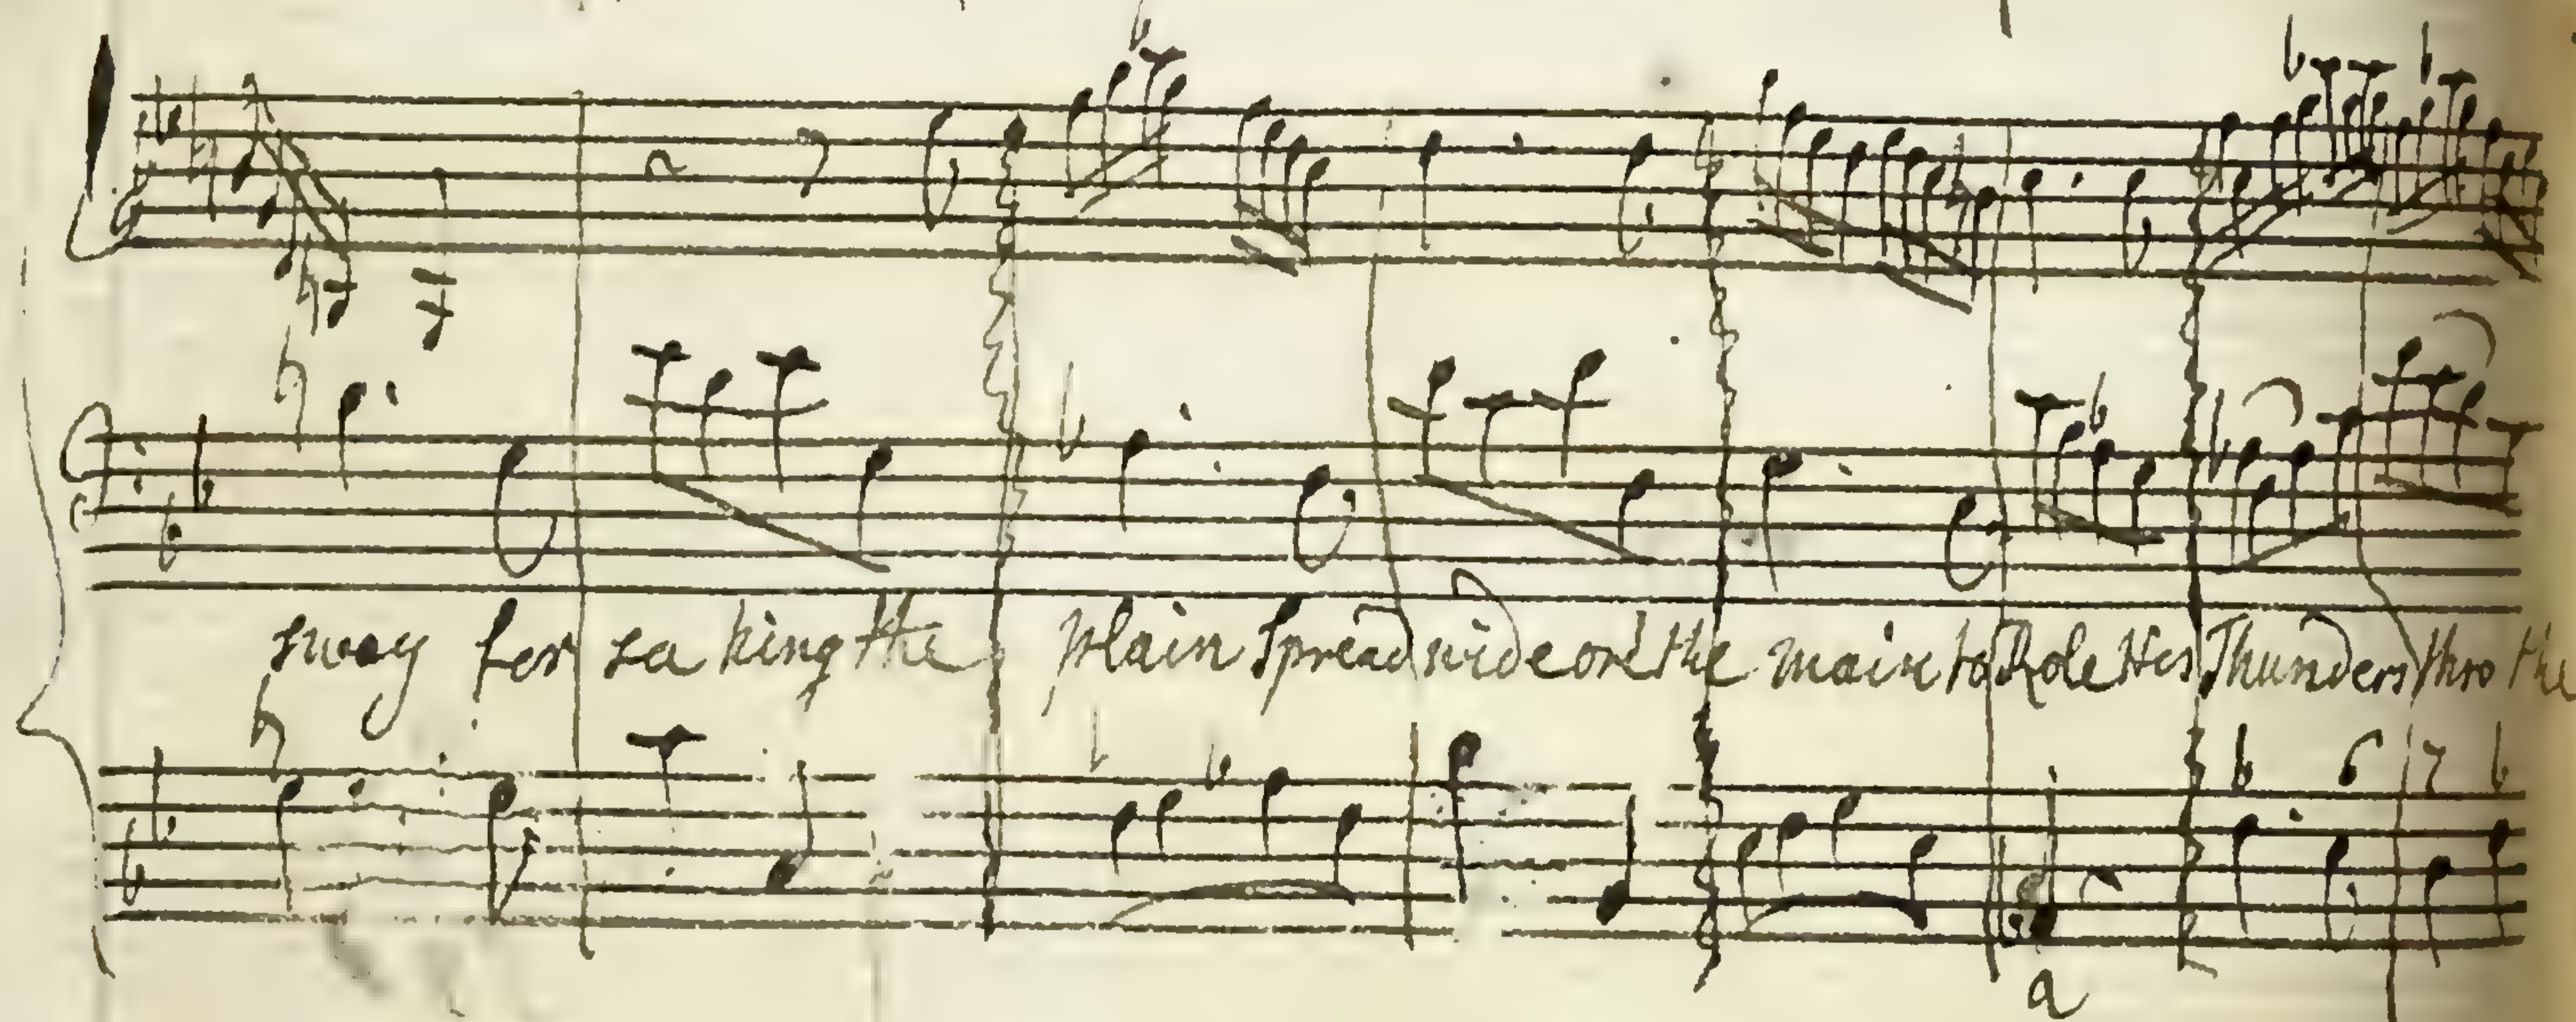 sway for sa king the plain Spread wide or'e the main to Role His Thunders thro the
a